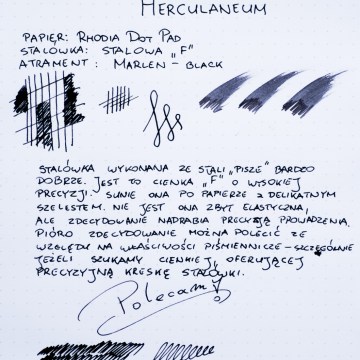 HERCULANEUM
PAPIER: RHODIA DOT PAD
STALÓWKA: STALOWA „F"
ATRAMENT: MARLEN - BLACK
STALÓWKA WYKONANA ZE STALI „PISZE" BARDZO
DOBRZE. JEST TO CIENKA „F" O WYSOKIEJ
PRECYZJI. SUNIE ONA PO PAPIERZE Z DELIKATNYM
SZELESTEM. NIE JEST ONA ZBYT ELASTYCZNA,
ALE ZDECYDOWANIE NADRABIA PRECYZJĄ PROWADZENIA.
PIÓRO ZDECYDOWANIE MOŻNA POLECIĆ ZE
WZGLĘDU NA WŁAŚCIWOŚCI PIŚMIENNICZE - SZCZEGÓLNIE
JEŻELI SZUKAMY CIENKIEJ, OFERUJĄCEJ
PRECYZYJNĄ KRESKĘ STALÓWKI.
Polecam!